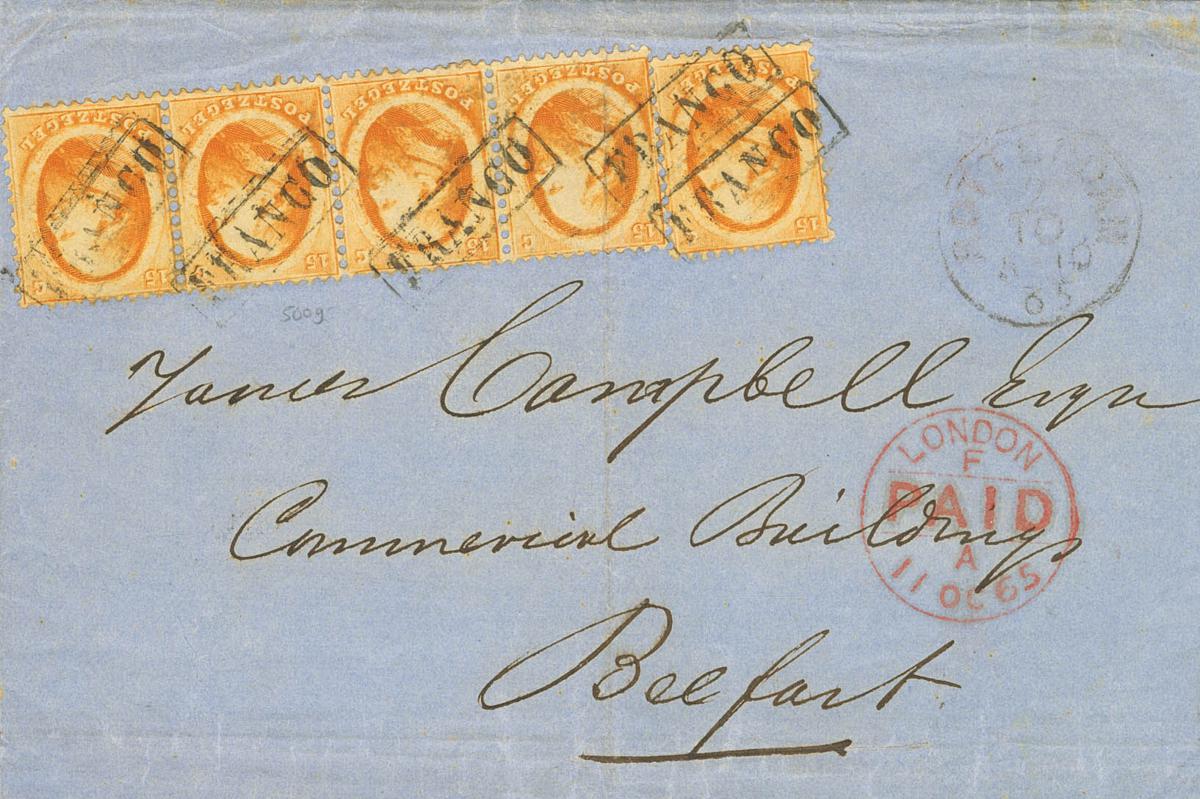 POSTZEGEL POSTZEGEL POSTZEGEL POSTZEGEL
15 C 15 C 15 C 15 C 15
FRANCO FRANCO FRANCO FRANCO FRANCO
ROTTERDAM
10
65
5009
James Campbell Esqr
Commercial Buildings
Belfast
LONDON
F
PAID
A
11 OC 65